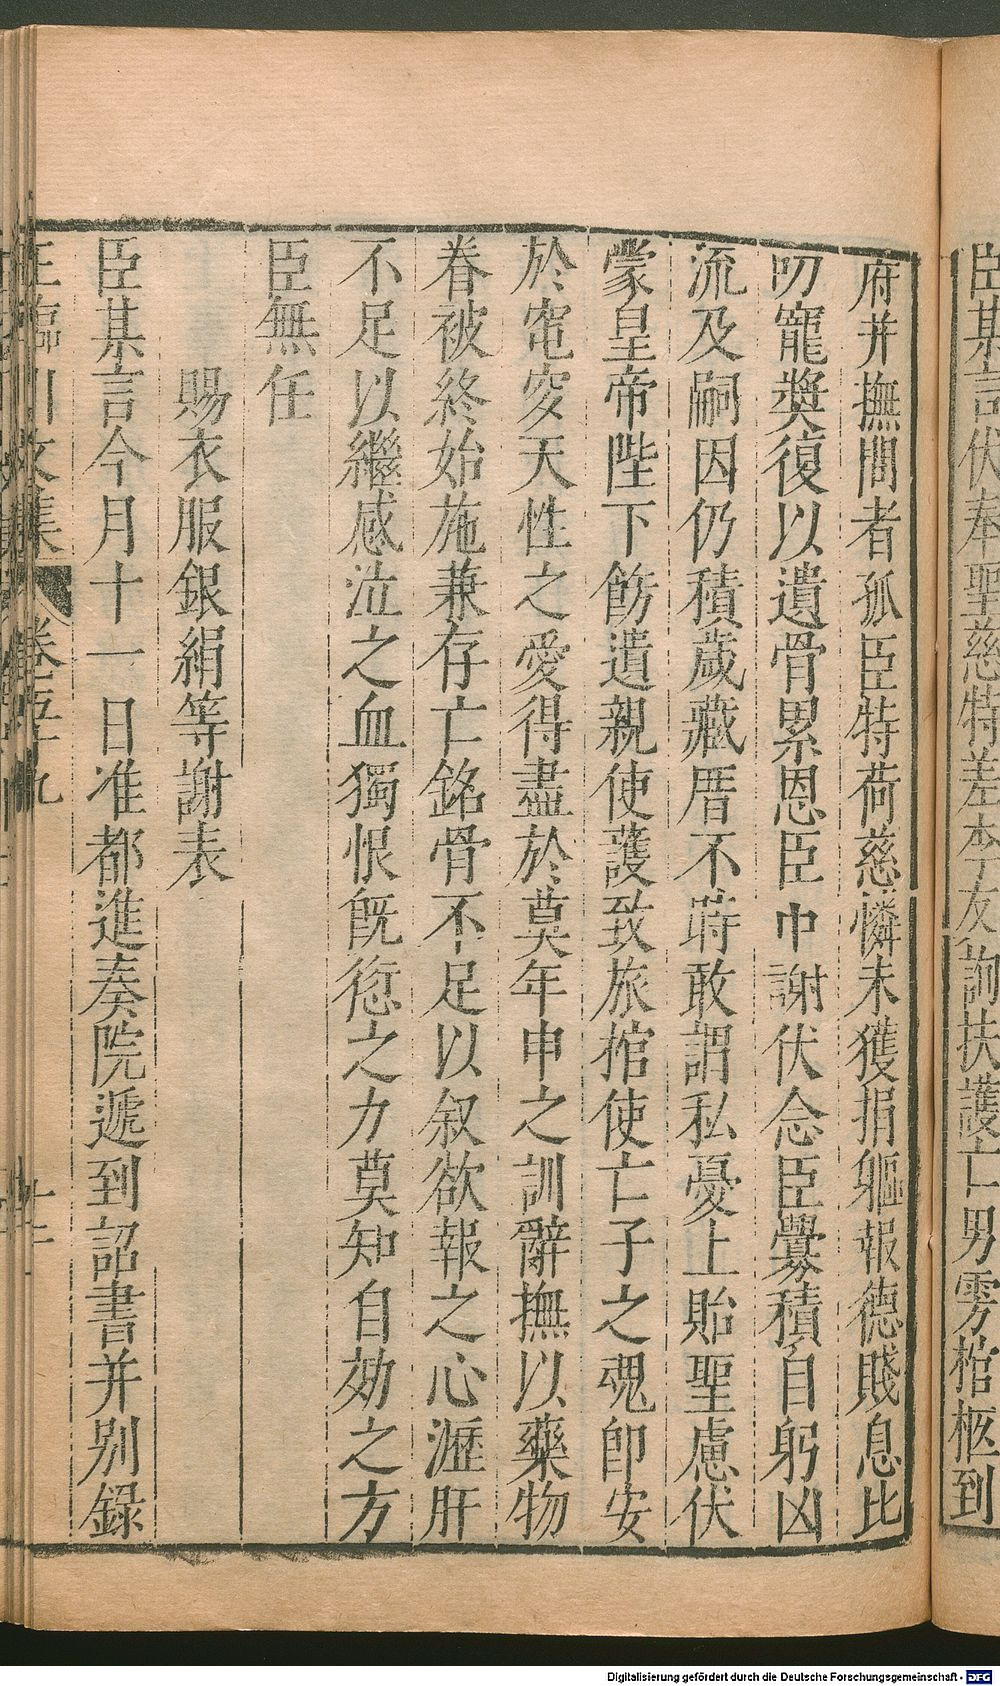 臣某言伏奉聖慈特差李友詢扶護亡男雱棺柩到
府并撫問者孤臣特荷慈憐未獲捐軀報德賤息比
叨寵奬復以遺骨累恩臣中謝伏念臣釁積自躬凶
流及嗣因仍積歲藏厝不時敢謂私憂上貽聖慮伏
蒙皇帝陛下飭遣親使護致旅棺使亡子之魂卽安
於窀穸天性之愛得盡於莫年申之訓辭撫以藥物
眷被終始施兼存亡銘骨不足以叙欲報之心瀝肝
不足以繼感泣之血獨恨旣愆之力莫知自効之方
臣無任
賜衣服銀絹等謝表
臣某言今月十一日准都進奏院遞到詔書并别錄
王臨川文集 卷五十九 十二
Digitalisierung gefördert durch die Deutsche Forschungsgemeinschaft - DFG